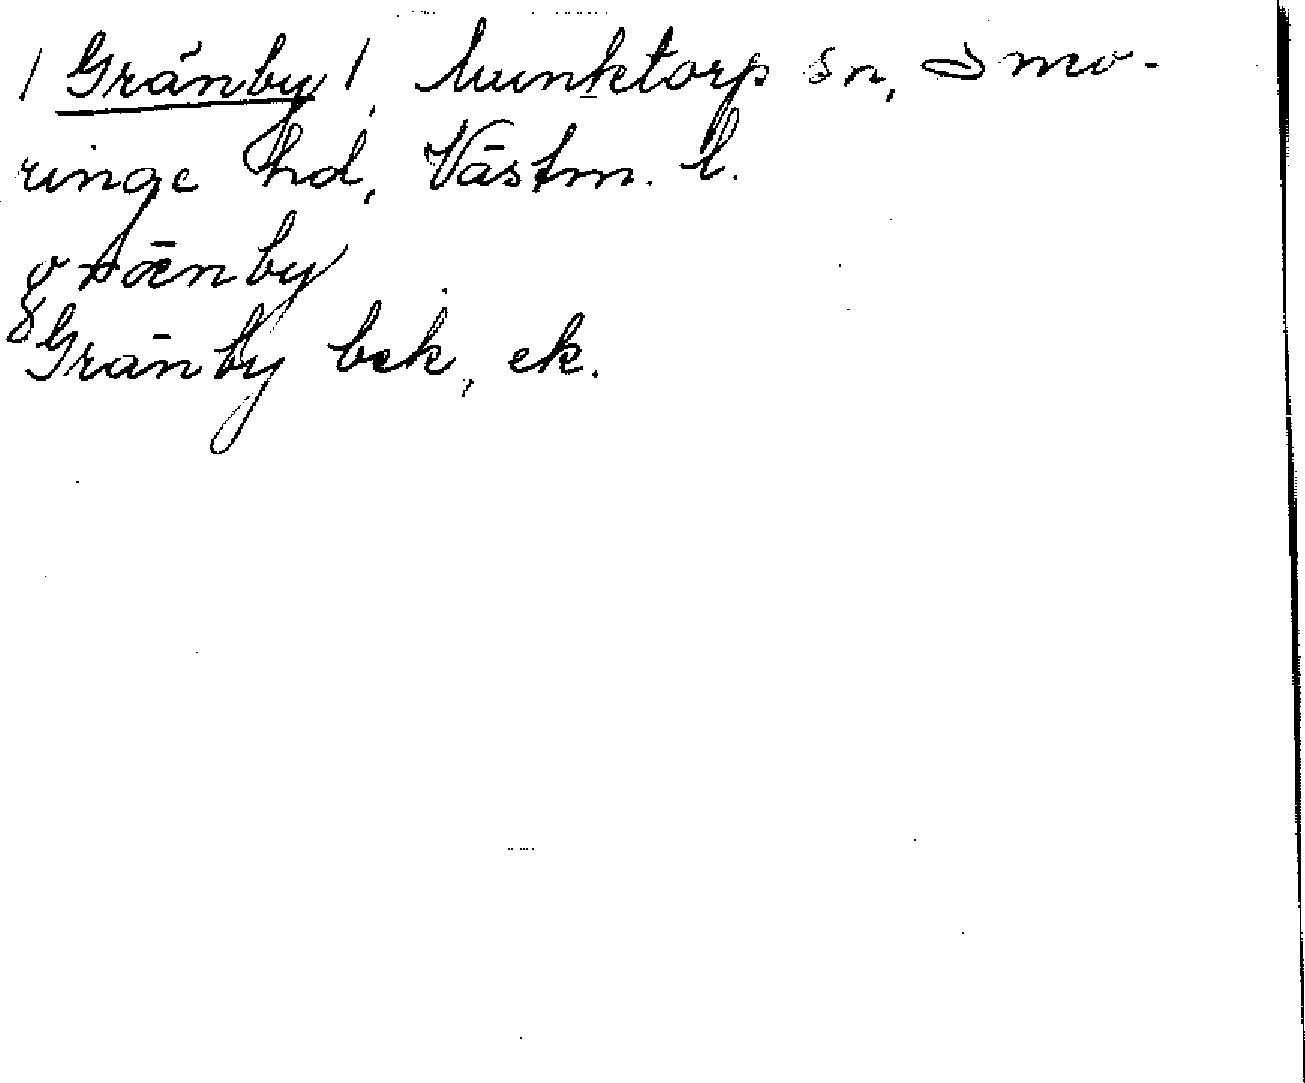 / Gränby /, Munktorp sn, Snö-
ringe hd, Västm. l.
grǣnby
Gränby bek, ek.